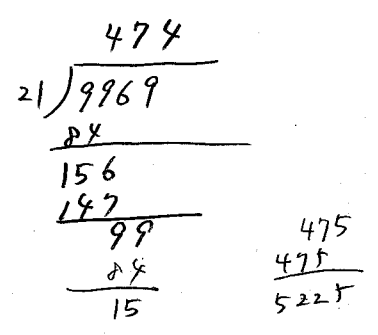 474
21)9969
84
156
147
99
84
15
475
475
5225